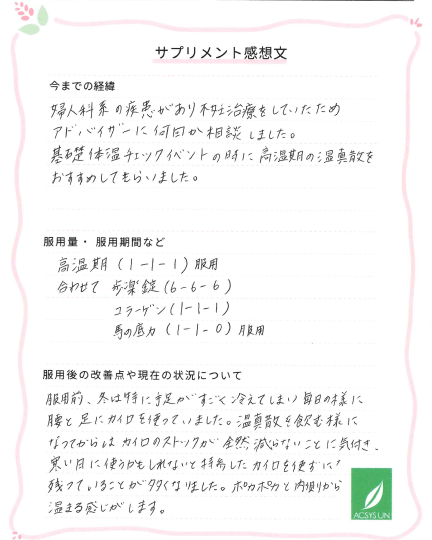 サプリメント感想文
今までの経緯
婦人科系の疾患があり不妊治療をしていたため
アドバイザーに何回か相談しました。
基礎体温チェックイベントの時に高温期の温真散を
おすすめしてもらいました。
服用量・服用期間など
高温期(1-1-1)服用
合わせて 歩楽錠(6-6-6)
コラーゲン(1-1-1)
馬の底力(1-1-0)服用
服用後の改善点や現在の状況について
服用前、冬は特に手足がすごく冷えてしまい毎日の様に
腰と足にカイロを使っていました。温真散を飲む様に
なってからは カイロのストックが全然減らないことに気付き、
寒い日に使うかもしれないと持参したカイロを使わずに
残っていることが多くなりました。ポカポカと内側から
温まる感じがします。
ACSYS UN